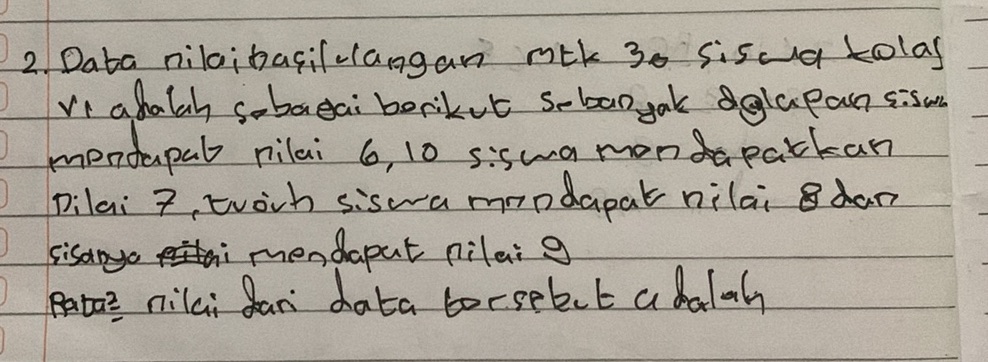 2. Data nilai hasil ulangan mtk 30 siswa kelas
VI adalah sebagai berikut sebanyak delapan siswa
mendapat nilai 6, 10 siswa mendapatkan
nilai 7, tujuh siswa mendapat nilai 8 dan
sisanya mendapat nilai 9
Rata² nilai dari data tersebut adalah